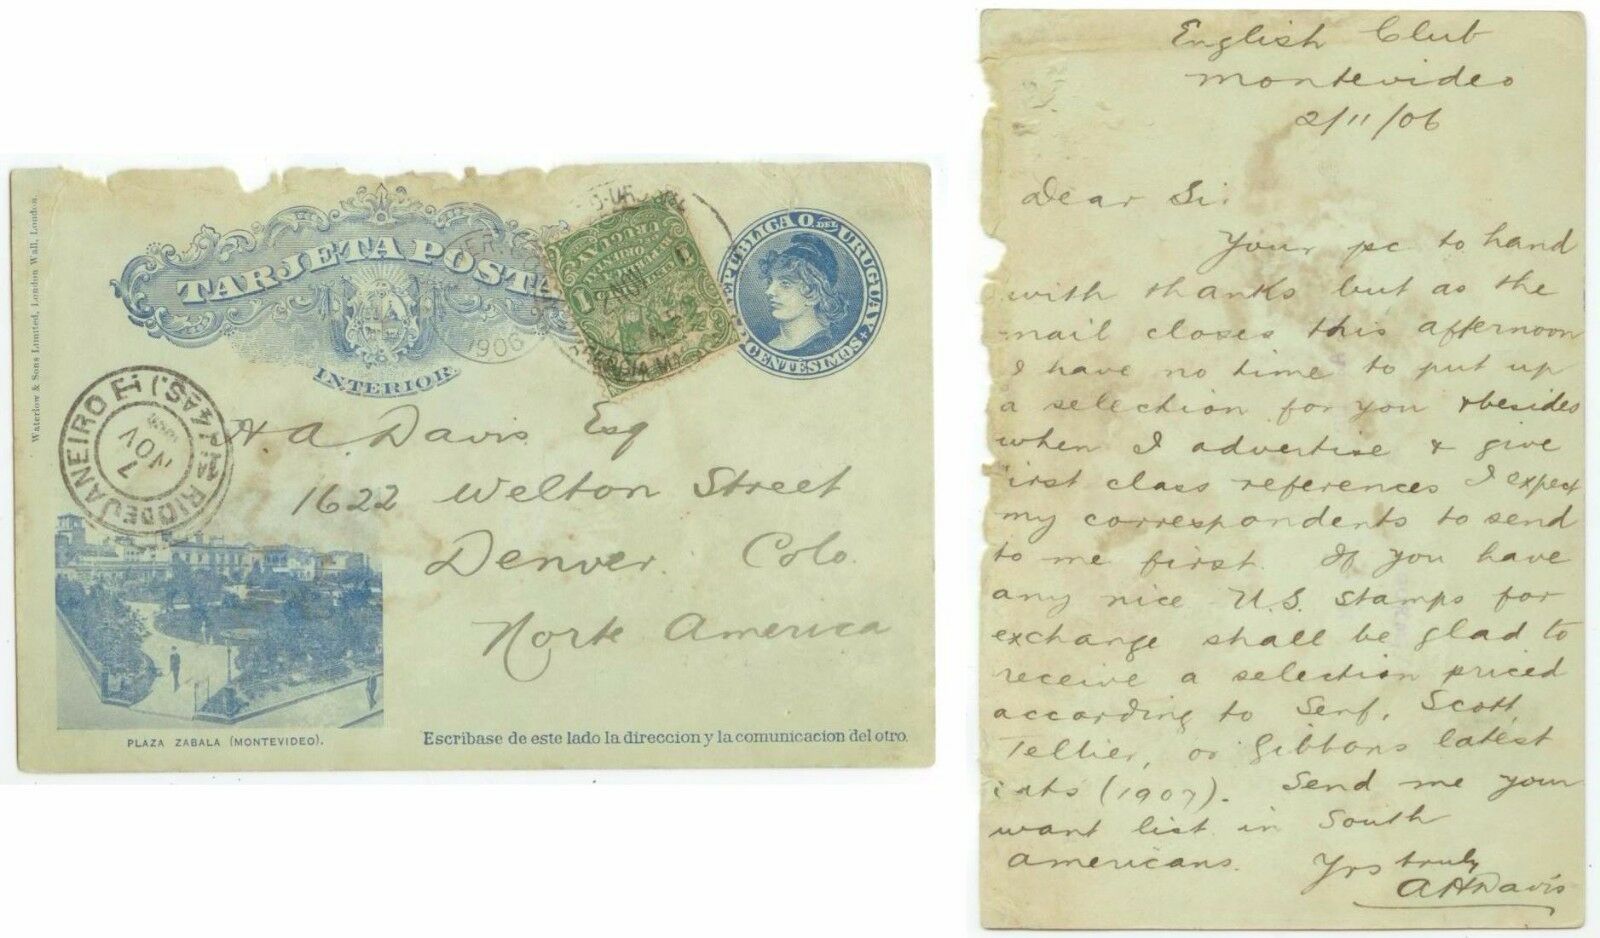 Waterlow & Sons Limited, London Wall, London.
TARJETA POSTA
INTERIOR
REPUBLICA O. DEL URUGUAY
CENTÉSIMOS
REPUBLICA
ORIENTAL
URUGUAY
1 1
2 NOV
1906
RIO DE JANEIRO
7
NOV
H. A. Davis Esq
1622 Welton Street
Denver. Colo.
North America
PLAZA ZABALA (MONTEVIDEO).
Escribase de este lado la direccion y la comunicacion del otro.
English Club
Montevideo
2/11/06
Dear Sir
Your pc to hand
with thanks but as the
mail closes this afternoon
I have no time to put up
a selection for you & besides
when I advertise & give
irst class references I expect
my correspondents to send
to me first. If you have
any nice U.S. stamps for
exchange shall be glad to
receive a selection priced
according to Senf, Scott,
Tellier, or Gibbons latest
(1907). Send me your
want list in South
americans. Yrs truly
A H Davis